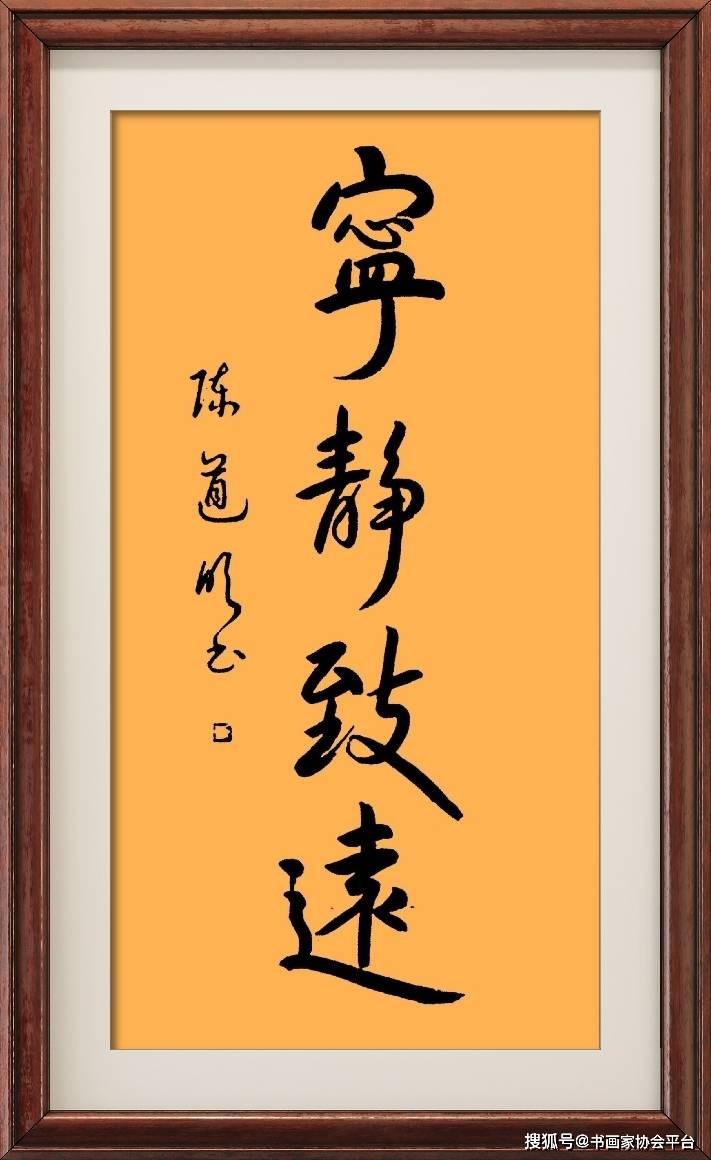 寧靜致遠
陈道明书
搜狐号@书画家协会平台